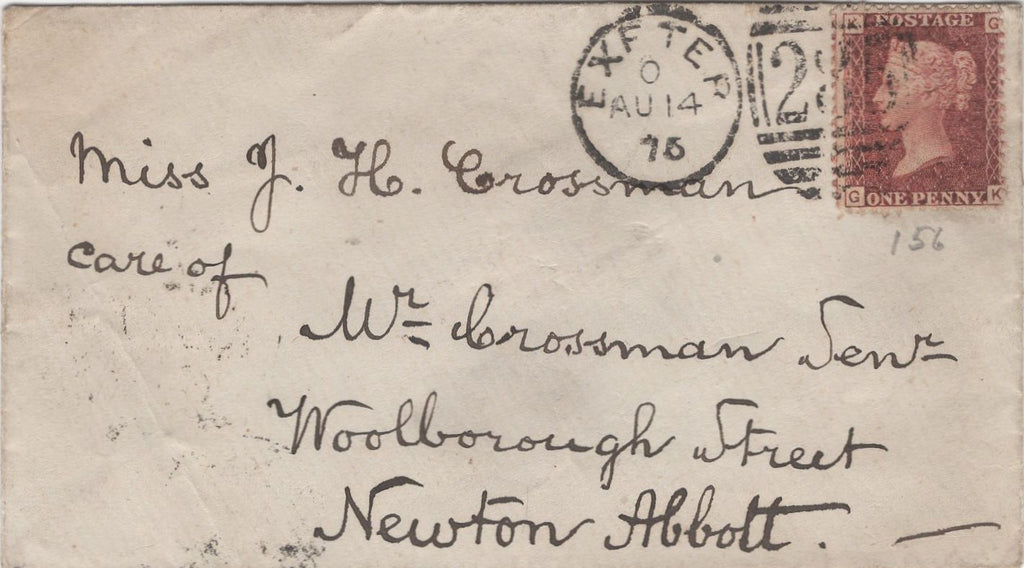 EXETER
O
AU 14
75
28
K POSTAGE G
G ONE PENNY K
156
Miss J. H. Crossman
care of
Mr Crossman Senr
Woolborough Street
Newton Abbott.